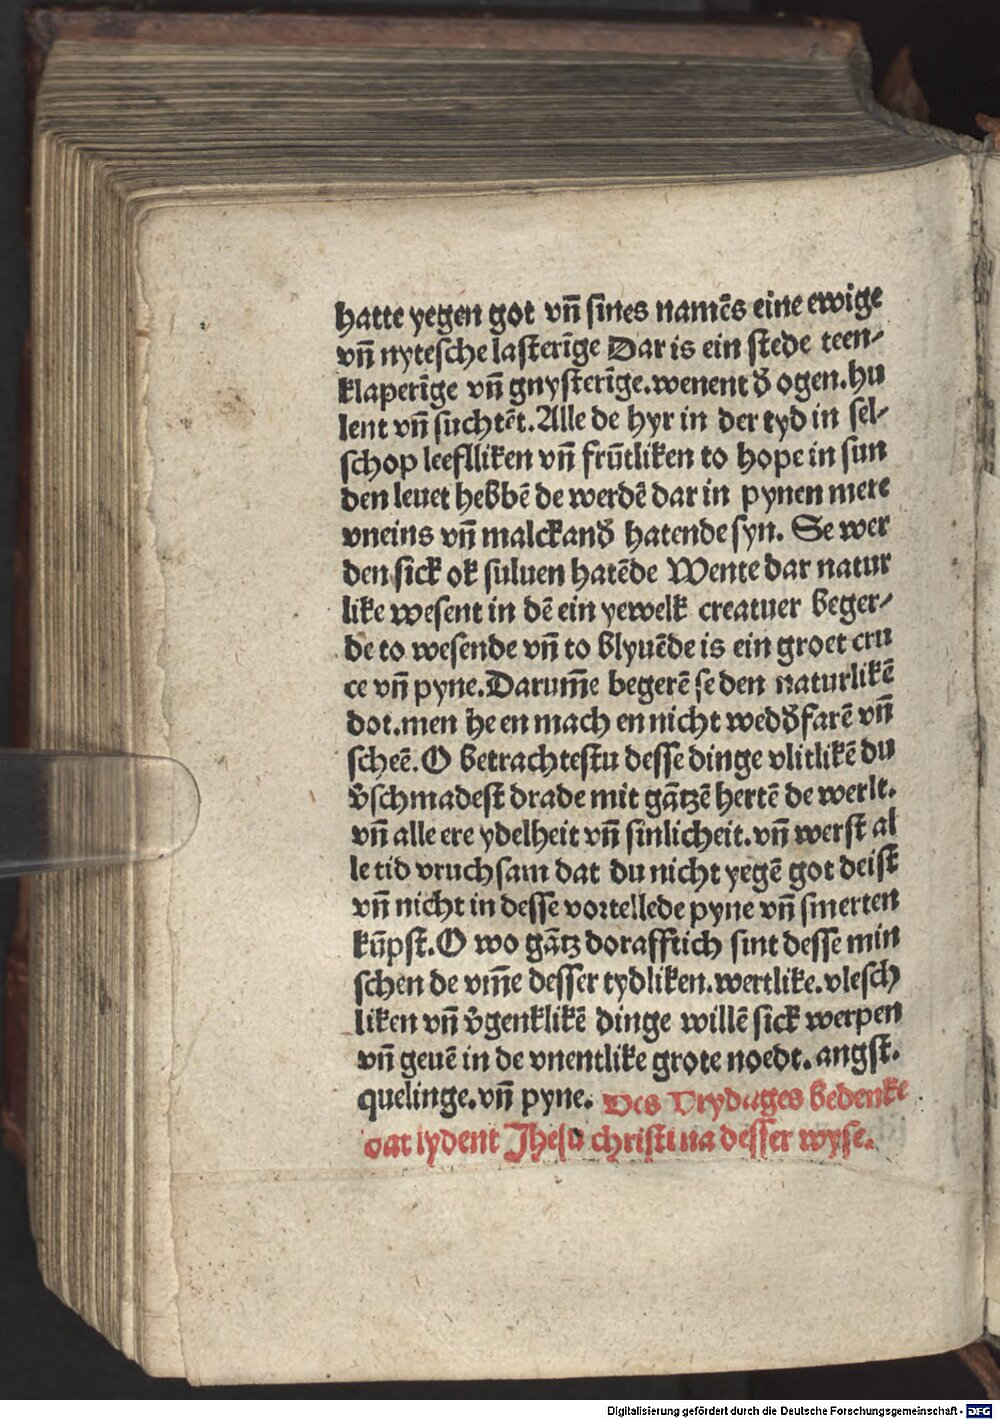 hatte yegen got vñ sines namēs eine ewige
vñ nytesche lasterīge Dar is ein stede teen⸗
klaperīge vñ gnysterīge.wenent d̄ ogen.hu
lent vñ suchtēt.Alle de hyr in der tyd in sel⸗
schop leeflliken vñ frūtliken to hope in sun
den leuet hebbē de werdē dar in pynen mere
vneins vñ malckand̄ hatende syn. Se wer
den sick ok suluen hatēde Wente dar natur
like wesent in dē ein yewelk creatuer beger⸗
de to wesende vñ to blyuēde is ein groet cru
ce vñ pyne.Darum̄e begerē se den naturlikē
dot.men he en mach en nicht wedd̄farē vñ
scheē.O betrachtestu desse dinge vlitlikē du
v̄schmadest drade mit gātzē hertē de werlt.
vñ alle ere ydelheit vñ sinlicheit.vñ werst al
le tid vruchsam dat du nicht yegē got deist
vñ nicht in desse vortellede pyne vñ smerten
kūpst.O wo gātz dorafftich sint desse min
schen de vm̄e desser tydliken.wertlike.vlesch
liken vñ v̄genklikē dinge willē sick werpen
vñ geuē in de vnentlike grote noedt.angst.
quelinge.vñ pyne. Des Vrydages bedenke
dat lydent Jhesu christi na desser wyse.
Digitalisierung gefördert durch die Deutsche Forschungsgemeinschaft - DFG